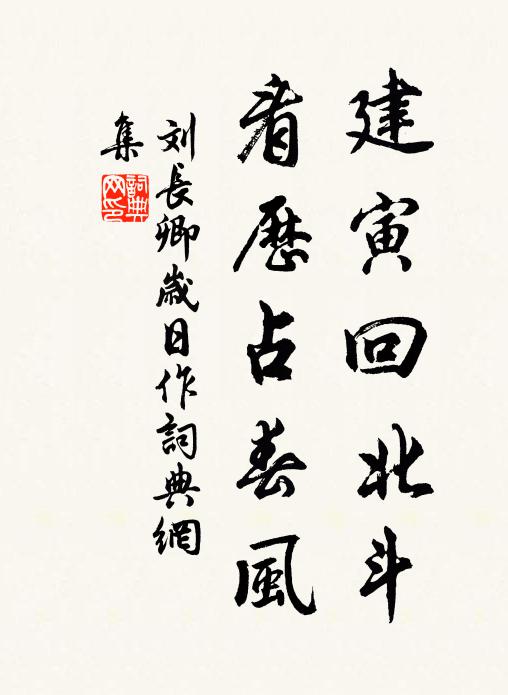 建寅回北斗
看歷占春風
刘長卿歲日作詞典網
集
詞典
网印